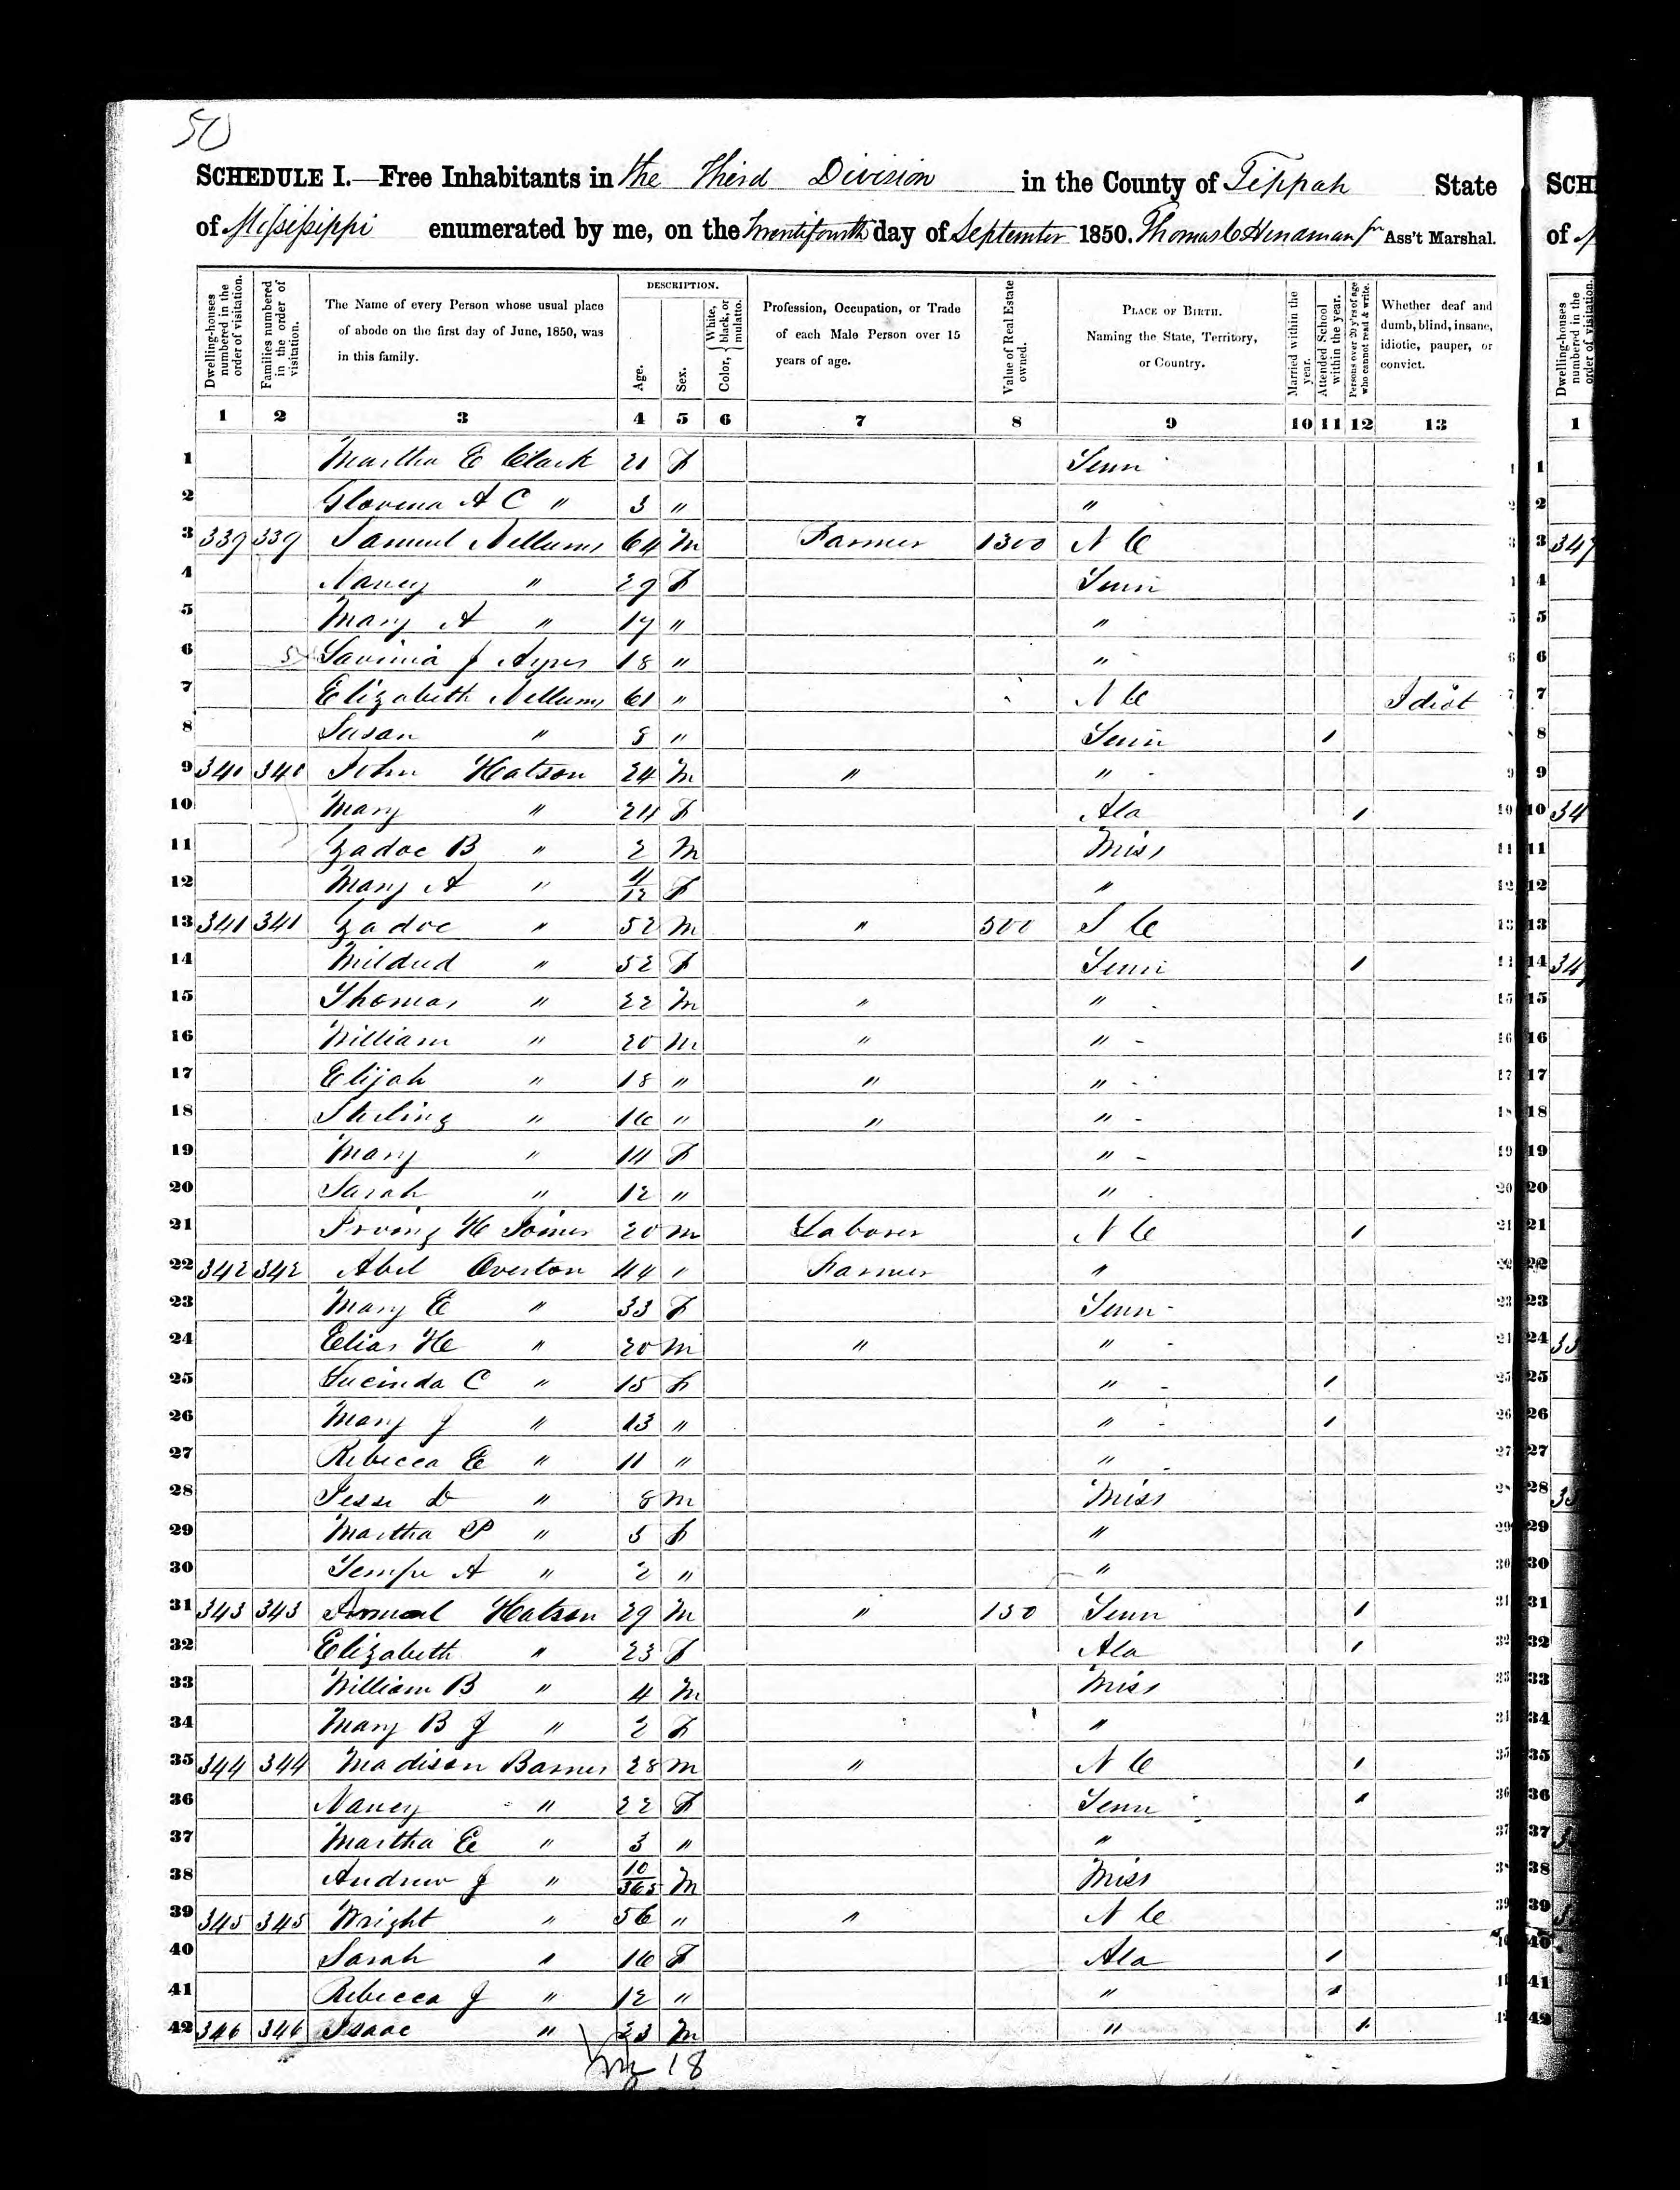 50
SCHEDULE I.—Free Inhabitants in the Third Division in the County of Tippah State
of Mississippi enumerated by me, on the Twentifourth day of September 1850. Thomas C Hindman Jr Ass't Marshal.
DESCRIPTION.
Dwelling-houses numbered in the order of visitation.
Families numbered in the order of visitation.
The Name of every Person whose usual place of abode on the first day of June, 1850, was in this family.
Age.
Sex.
Color, { White, black, or mulatto.
Profession, Occupation, or Trade of each Male Person over 15 years of age.
Value of Real Estate owned.
PLACE OF BIRTH. Naming the State, Territory, or Country.
Married within the year.
Attended School within the year.
Persons over 20 y'rs of age who cannot read & write.
Whether deaf and dumb, blind, insane, idiotic, pauper, or convict.
1 2 3 4 5 6 7 8 9 10 11 12 13
1 Martha E Clark 21 F Tenn
2 A C " 3 " "
3 339 339 Samuel Nellums 64 M Farmer 1300 N C
4 Nancy " 29 F Tenn
5 Mary A " 17 " "
6 Lavinia J Ayres 18 " "
7 Elizabeth Nellums 61 " N C Idiot
8 Susan " 8 " Tenn 1
9 340 340 John Hatson 24 M " "
10 Mary " 24 F Ala 1
11 Zadoc B " 2 M Miss
12 Mary A " 11/12 F "
13 341 341 Zadoc " 52 M " 500 S C
14 Mildred " 52 F Tenn 1
15 Thomas " 22 M " "
16 William " 20 M " "
17 Elijah " 18 " " "
18 Sterling " 16 " " "
19 Mary " 14 F "
20 Sarah " 12 " "
21 Irving H Joiner 20 M Laborer N C 1
22 342 342 Abel Overton 44 " Farmer "
23 Mary E " 33 F Tenn
24 Elias H " 20 M " "
25 Lucinda C " 15 F " 1
26 Mary J " 13 " " 1
27 Rebecca E " 11 " "
28 Jesse D " 8 M Miss
29 Martha P " 5 F "
30 Tempe A " 2 " "
31 343 343 Samuel Hatson 29 M " 150 Tenn 1
32 Elizabeth " 23 F Ala 1
33 William B " 4 M Miss
34 Mary B J " 2 F "
35 344 344 Madison Barnes 28 M " N C 1
36 Nancy " 22 F Tenn 1
37 Martha E " 3 " "
38 Andrew J " 10/365 M Miss
39 345 345 Wright " 56 " " N C
40 Sarah " 16 F Ala 1
41 Rebecca J " 12 " " 1
42 346 346 Isaac " 23 M " 1
18